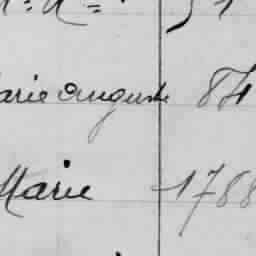 Marie Auguste 84
Marie 1788